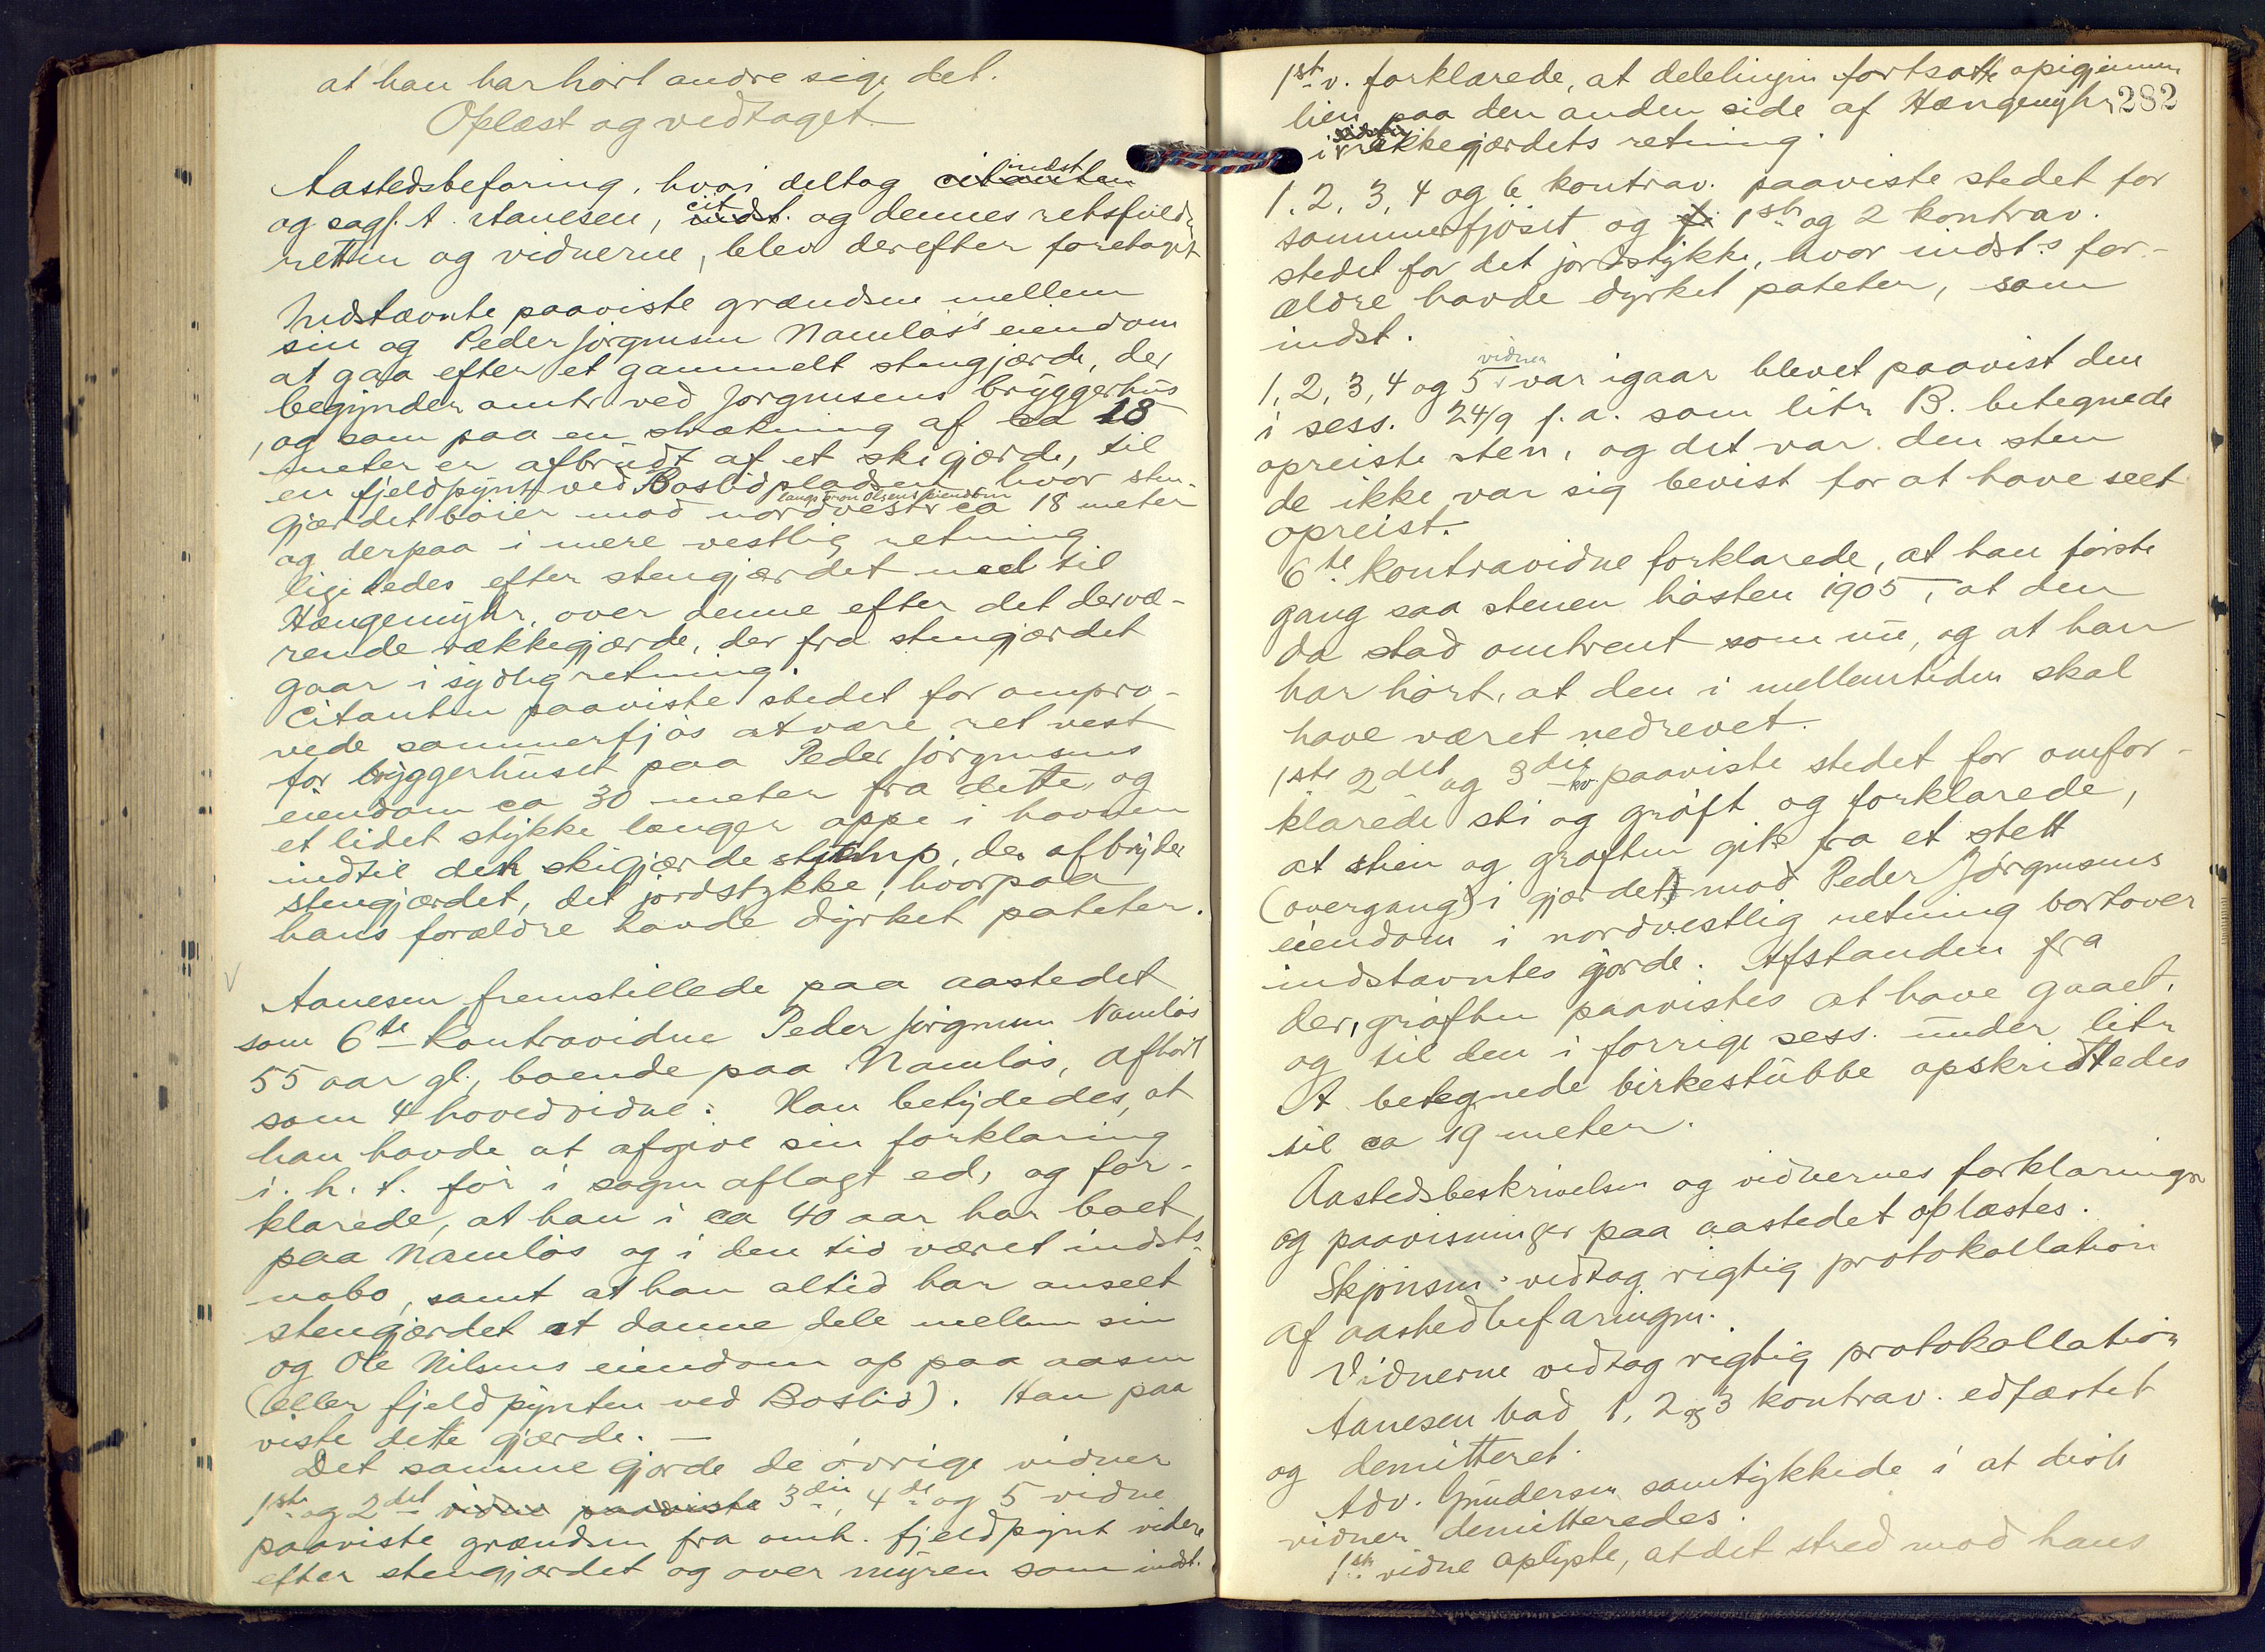 at han har hørt andre sige det.
Oplæst og vedtaget.
Aastedsbefaring, hvori deltog citanten indst.
og sagf. A. Aanesen, indst. cit. og dennes retsfuldm.
retten og vidnerne, blev derefter foretaget
Indstævnte paaviste grændsen mellem
sin og Peder Jörgensen Namløs's eiendom
at gaa efter et gammelt stengjærde, der
begynder omtr. ved Jørgensens bryggerhus
, og som paa en strækning af ca 18
meter er afbrudt af et skigjærde, til
en fjeldpynt ved Boslidpladsen hvor sten-
langs Olsens eiendom
gjærdet bøier mod nordvest ca 18 meter
og derpaa i mere vestlig retning
ligeledes efter stengjærdet ned til
Hængemyhr, over denne efter det dervæ-
rende rækkegjærde, der fra stengjærdet
gaar i sydlig retning.
Citanten paaviste stedet for ompro-
vede sommerfjøs at være ret vest
for bryggerhuset paa Peder Jörgensens
eiendom ca 30 meter fra dette, og
et lidet stykke længer oppe i havnen
indtil det skigjærde, der afbryder
stengjærdet, det jordstykke, hvorpaa
hans forældre havde dyrket poteter.
Aanesen fremstillede paa aastedet
som 6te Kontravidne Peder Jörgensen Namløs
55 aar gl., boende paa Namløs, afhørt
som 4 hovedvidne. Han betydedes, at
han havde at afgive sin forklaring
i. h. t. før i sagen aflagt ed, og for-
klarede, at han i ca 40 aar har boet
paa Namløs og i den tid været indsts.
nabo, samt at han altid har anseet
stengjærdet at danne dele mellem sin
og Ole Nilsens eiendom op paa aasen
(eller fjeldpynten ved Boslid). Han paa
viste dette gjærde. —
Det samme gjorde de øvrige vidner
1ste og 2det vidne paaviste 3die, 4de og 5 vidne
paaviste grændsen fra omh. fjeldpynt videre
efter stengjærdet og over myren som indst.
282
1ste v. forklarede, at delelinjen fortsatte opigjennem
lien paa den anden side af Hængemyhr
i sidste rækkegjærdets retning.
1, 2, 3, 4 og 6 kontrav. paaviste stedet for
sommerfjøset og 1ste og 2 kontrav.
stedet for det jordstykke, hvor indst:s for-
ældre havde dyrket poteter, som
indst.
1, 2, 3, 4 og 5 vidner var igaar blevet paavist den
i sess. 24/9 f. a. som litr B. betegnede
opreiste sten, og det var den sten
de ikke var sig bevist for at have seet
opreist.
6te Kontravidne forklarede, at han første
gang saa stenen høsten 1905, at den
da stod omtrent som nu, og at han
har hørt, at den i mellemtiden skal
have været nedrevet.
1ste 2det og 3die kv. paaviste stedet for omfor-
klarede sti og grøft og forklarede,
at stien og grøften gik fra et stett
(overgang) i gjærdet mod Peder Jørgensens
eiendom i nordvestlig retning bortover
indstævntes jorde. Afstanden fra
der, grøften paavistes at have gaaet,
og til den i forrige sess. under litr
A betegnede birkestubbe opskridtedes
til ca 19 meter.
Aastedsbeskrivelsen og vidnernes forklaringer
og paavisninger paa aastedet oplæstes.
Skjønsm. vedtog rigtig protokollation
af aastedbefaringen.
Vidnerne vedtog rigtig protokollation
Aanesen bad 1, 2 og 3 kontrav. edfæstet
og demitteret.
Adv. Gundersen samtykkede i at disse
vidner demitteredes.
1ste vidne oplyste, at det stred mod hans